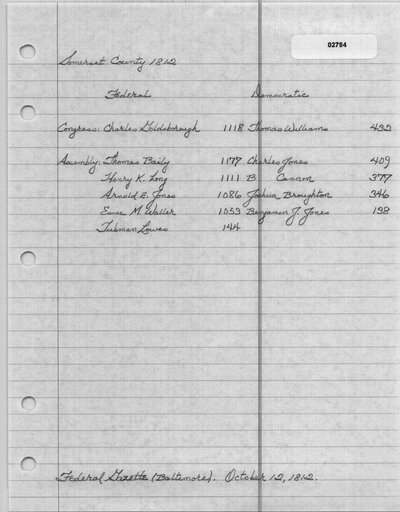 02794
Somerset County 1812
Federal Democratic
Congress: Charles Goldsborough 1118 Thomas Williams 432
Assembly: Thomas Baily 1177 Charles Jones 409
Henry K. Long 1111 B Cannon 377
Arnold E. Jones 1086 Joshua Broughton 346
Esme M. Waller 1053 Benjamin J. Jones 138
Tubman Lowes 144
Federal Gazette (Baltimore). October 12, 1812.